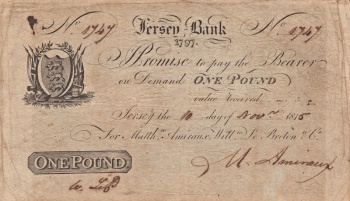 No. 1747 Jersey Bank No. 1747
1797.
I Promise to pay the Bearer
on Demand ONE POUND
value received
Jersey the 10 day of Novr. 1815
For Matthw. Amiraux, Willm. Le Breton & Co.
M. Amiraux
ONE POUND.